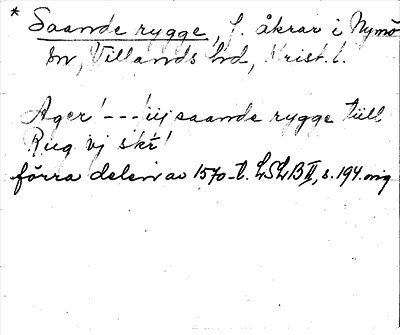 * Saande rygge, f. åkrar i Nymö
sn, Villands hd, Krist. l.
Ager' --- 'iij saande rygge tiill
Rug vj skr̃'
förra delen av 1570-t. LSLB II, s. 194. orig